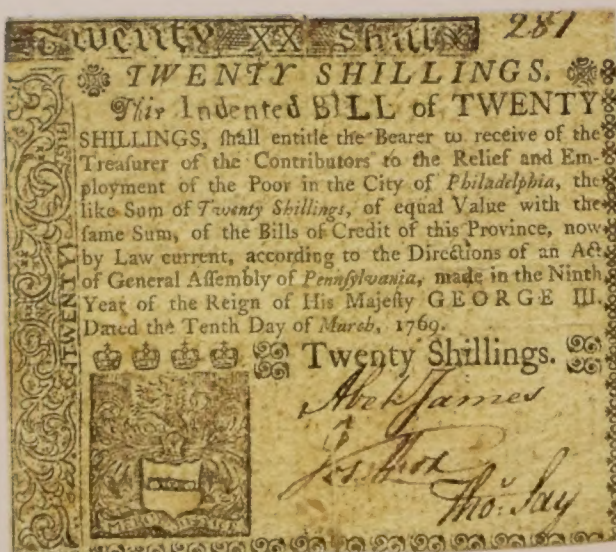 Twenty XX Shill 287
TWENTY SHILLINGS.
This Indented BILL of TWENTY
SHILLINGS, ſhall entitle the Bearer to receive of the
Treaſurer of the Contributors to the Relief and Em-
ployment of the Poor in the City of Philadelphia, the
like Sum of Twenty Shillings, of equal Value with the
ſame Sum, of the Bills of Credit of this Province, now
by Law current, according to the Directions of an Act
of General Aſſembly of Pennſylvania, made in the Ninth
Year of the Reign of His Majeſty GEORGE III.
Dated the Tenth Day of March, 1769.
Twenty Shillings.
Abel James
Tho.s Say
TWENTY
MERCY JUSTICE